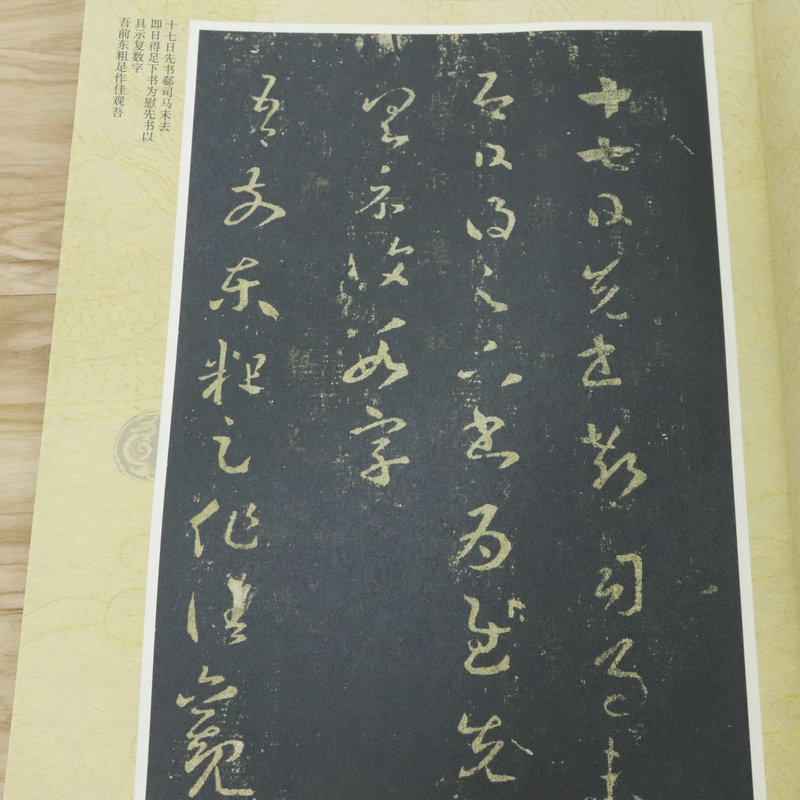 十七日先書郗司馬未
即日得足下書為慰先
具示復數字
吾前東粗足作佳觀
十七日先书郗司马未去
即日得足下书为慰先书以
具示复数字
吾前东粗足作佳观吾